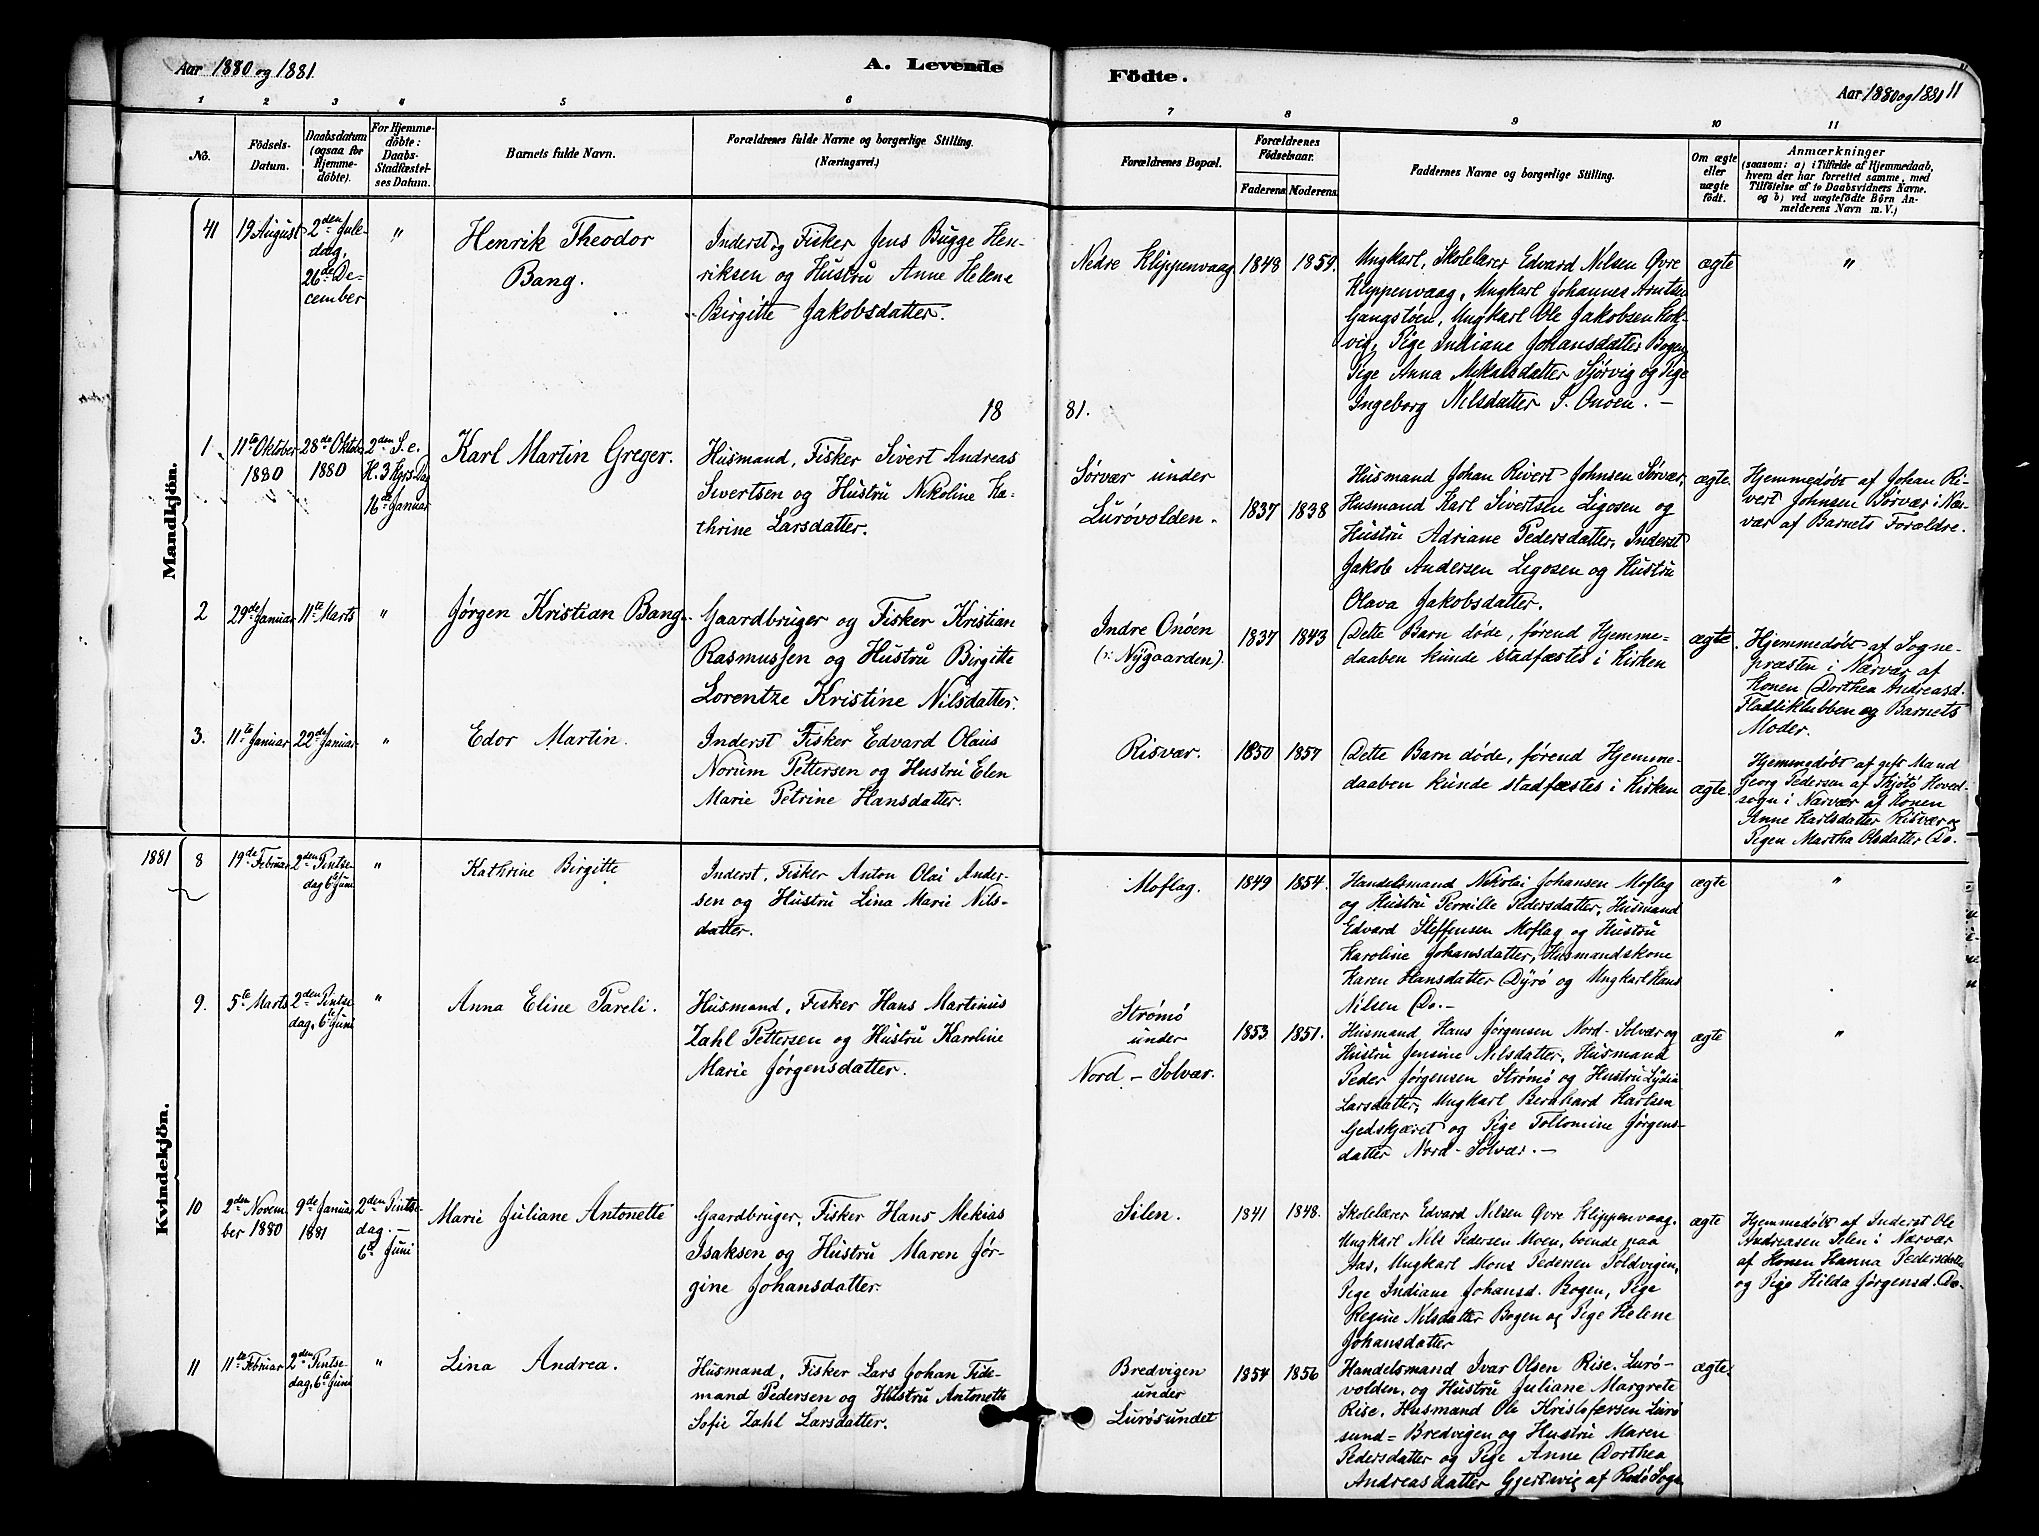 Aar 1880 og 1881.
A. Levende
Födte.
Aar 1880 og 1881
11
1 2 3 4 5 6 7 8 9 10 11
No.
Födsels-
Datum.
Daabsdatum
(ogsaa for
Hjemme-
döbte).
For Hjemme-
döbte:
Daabs-
Stadfæstel-
ses Datum.
Barnets fulde Navn.
Forældrenes fulde Navne og borgerlige Stilling.
(Næringsvei.)
Forældrenes Bopæl.
Forældrenes
Födselsaar.
Faderens.
Moderens.
Faddernes Navne og borgerlige Stilling.
Om ægte
eller
uægte
födt.
Anmærkninger
(saasom: a) i Tilfælde af Hjemmedaab,
hvem der har forrettet samme, med
Tilföielse af to Daabsvidners Navne.
og b) ved uægtefödte Börn An-
melderens Navn m. V.)
Mandkjön.
41
19 August
2den Jule-
dag,
26de De-
cember
"
Henrik Theodor
Bang.
Inderst og Fisker Jens Bugge Hen-
riksen og Hustru Anne Helene
Birgitte Jakobsdatter.
Nedre Klippenvaag
1848
1859.
Ungkarl, Skolelærer Edvard Nilsen Øvre
Klippenvaag, Ungkarl Johannes Arntsen
Gangstøen, Ungkarl Ole Jakobsen Kok-
vig, Pige Indiane Johansdatter Bogen,
Pige Anna Mikalsdatter Sjørvig og Pige
Ingeborg Nilsdatter S. Onøen. –
ægte
"
18
81.
1
11te Oktober
1880
28de Oktober
1880
2den S. e.
H. 3 Kgrs Dag
16de Januar
Karl Martin Greger.
Husmand, Fisker Sivert Andreas
Sivertsen og Hustru Nikoline Ka-
thrine Larsdatter.
Sørvær under
Lurøvolden.
1837
1838
Husmand Johan Rivert Johnsen Sørvær,
Husmand Karl Sivertsen Ligosen og
Hustru Adriane Pedersdatter, Inderst
Jakob Andersen Ligosen og Hustru
Olava Jakobsdatter.
ægte.
Hjemmedøbt af Johan Ri-
vert Johnsen Sørvær i Nær-
vær af Barnets Forældre.
2
29de Januar
11te Marts
"
Jørgen Kristian Bang.
Gaardbruger og Fisker Kristian
Rasmussen og Hustru Birgitte
Lorentze Kristine Nilsdatter.
Indre Onøen
(ɔ: Nygaarden).
1837
1843
Dette Barn døde, førend Hjemme-
daaben kunde stadfæstes i Kirken
ægte.
Hjemmedøbt af Sogne-
præsten i Nærvær af
Konen Dorthea Andreasd.
Fladliklubben og Barnets
Moder.
3.
11te Januar
22de Januar
"
Edor Martin.
Inderst Fisker Edvard Olaus
Norum Pettersen og Hustru Elen
Marie Petrine Hansdatter.
Risvær.
1850
1857
Dette Barn døde, førend Hjemme-
daaben kunde stadfæstes i Kirken
ægte.
Hjemmedøbt af gift Mand
Georg Pedersen af Thjøtø Hoved-
sogn i Nærvær af Konen
Anne Karlsdatter Risvær og
Pigen Martha Olsdatter Do.
Kvindekjön.
1881
8
19de Februar
2den Pintse-
dag 6te Juni
"
Kathrine Birgitte
Inderst, Fisker Anton Olai Ander-
sen og Hustru Lina Marie Nils-
datter.
Moflag.
1849
1854.
Handelsmand Nikolai Johansen Moflag
og Hustru Pernille Pedersdatter, Husmand
Edvard Steffensen Moflag og Hustru
Karoline Johansdatter, Husmandskone
Karen Hansdatter Dyrø og Ungkarl Hans
Nilsen Do. –
ægte
"
9.
5te Marts
2den Pintse-
dag, 6te Juni
"
Anna Eline Pareli.
Husmand, Fisker Hans Martinus
Zahl Pettersen og Hustru Karoline
Marie Jørgensdatter.
Strømø
under
Nord – Solvær.
1853
1851.
Husmand Hans Jørgensen Nord-Solvær og
Hustru Jensine Nilsdatter, Husmand
Peder Jørgensen Strømø og Hustru Lydia
Larsdatter, Ungkarl Bernhard Karlsen
Gedskjæret og Pige Tollomine Jørgens-
datter Nord-Solvær. –
ægte
"
10
2den Novem-
ber 1880
9de Januar
1881
2den Pintse-
dag. –
6te Juni
Marie Juliane Antonette
Gaardbruger, Fisker Hans Mekias
Isaksen og Hustru Maren Jør-
gine Johansdatter.
Silen.
1841
1848.
Skolelærer Edvard Nilsen Øvre Klippenvaag.
Ungkarl Nils Pedersen Moen, boende paa
Aas, Ungkarl Mons Pedersen Soldvigen,
Pige Indiane Johansd. Bogen, Pige
Regine Nilsdatter Bogen og Pige Helene
Johansdatter
ægte
Hjemmedøbt af Inderst Ole
Andreasen Silen i Nærvær
af Konen Hanna Pedersdatter
og Pige Hilda Jørgensd. Do.
11
11te Februar
2den Pintse-
dag, 6te Juni
"
Lina Andrea.
Husmand, Fisker Lars Johan Tide-
mand Pedersen og Hustru Antonette
Sofie Zahl Larsdatter.
Bredvigen
under
Lurøsundet
1854
1856
Handelsmand Ivar Olsen Rise. Lurø-
volden, og Hustru Juliane Margrete
Rise. Husmand Ole Kristofersen Lurø
sund= Bredvigen og Hustru Maren
Pedersdatter og Pige Anne Dorthea
Andreasdatter Gjersvig af Rødø Sogn
ægte.